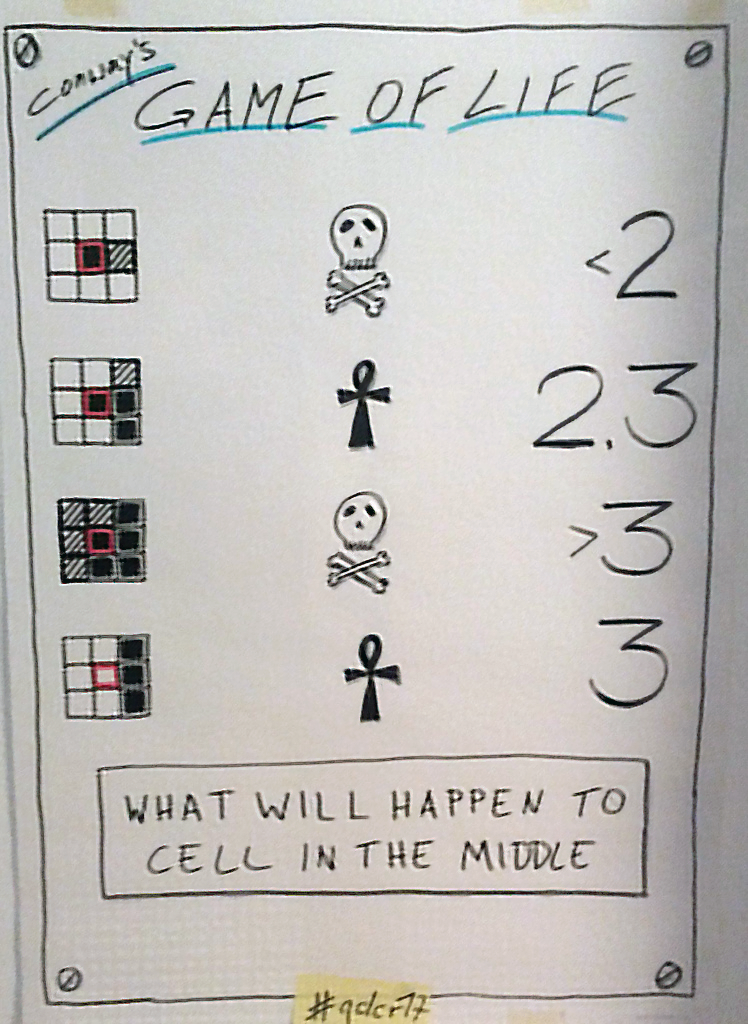 Conway's
GAME OF LIFE
<2
2.3
>3
3
WHAT WILL HAPPEN TO
CELL IN THE MIDDLE
#gdcr17